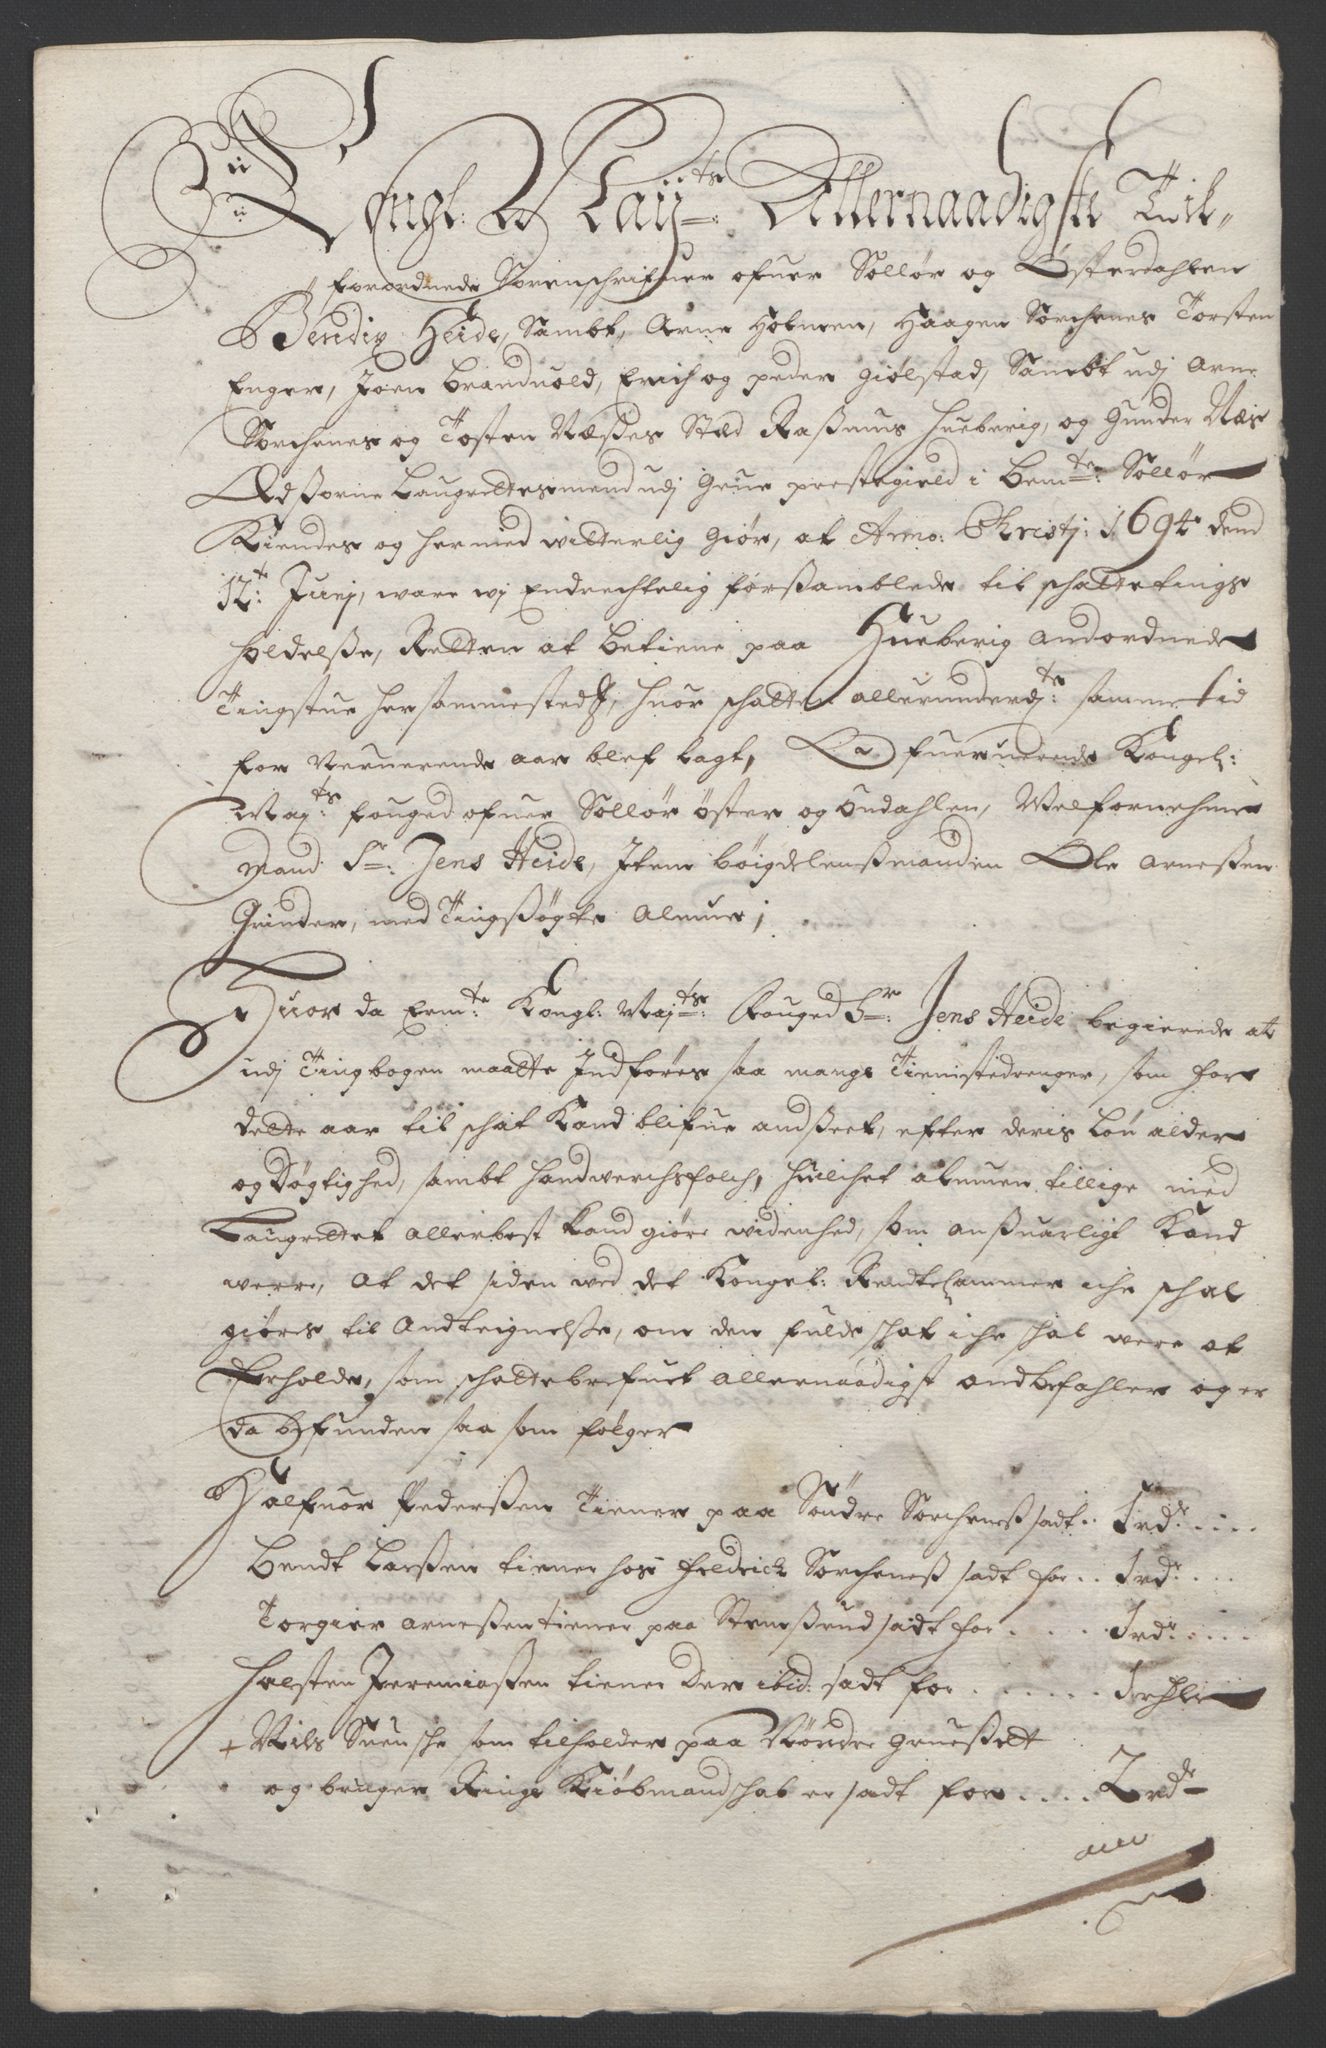 Kongl: Maÿ:ts Allernaadigste Till-
forordnede Sorenschrifuer ofuer Sollør og Østerdahlen
Bendix Heide, Sambt, Arne Hofueen, Haagen Sorchenes Torsten
Enger, Joen Branduold, Erich og peder giølstad, Sambt udj Arne
Sorchenes og Tosten Næßes Sted Raßmus Hueberig, og Gunder Næs
Edßorne Laugrettesmend udj Grue prestegield i bem:te Sollør
Kiendes og hermed witterlig Giør, at Anno: Christj: 1694 dend
12:te Junj, ware wj Endrechtelig forßamblede til schattetings
holdelße, Retten at betiene paa Hueberig andordnede
Tingstue hersammesteds, huor schatten allerunderd:te samme tid
for Neruerende aar blef lagt, Ofueruerende Kongel:
Maj:ts fouged ofuer Sollør øster og Ondahlen, Welfornehme
Mand Sr: Jens Heide, Item bøigdelenßmanden Ole Arneßen
Grinder, med Tingßøgte Almue;
Huor da Erm:te Kongl: Maj:ts Fouged Sr: Jens Heide begierede at
udj Tingbogen maatte Indføres saa mange Tienistedrenger, som for
dette aar til schat Kand blifue andßeet, efter deris Løn alder
og Døgtighed, sambt handwerchsfolch, huilchet almuen tillige med
Laugrettet allerbest kand giøre widenhed, som anßuarligt Kand
werre, at det siden wed det Kongel: Rendtekammer iche schal
giøres til Andteignelße, om den fulde schat iche schal were at
Erholde, som schattebrefuet allernaadigst andbefahler og er
da befunden saa som følger
Halfuor Pederßen Tiener paa Søndre Sorcheneß sadt .. 1 rd:r ....
Bendt Larßen tiener hos Fredrich Sorcheneß sadt for .. 1 rd:r ....
Torgier Arneßen tiener paa Stenßrud sadt for .... 1 rd:r ....
Halsten Jeremiaßen tiener der ibid: sadt for ......
+ Nils Suensche som tilholder paa Nordre Grueßett
og bruger Ringe Kiøbmandschab er sadt for .... 2 rd:r